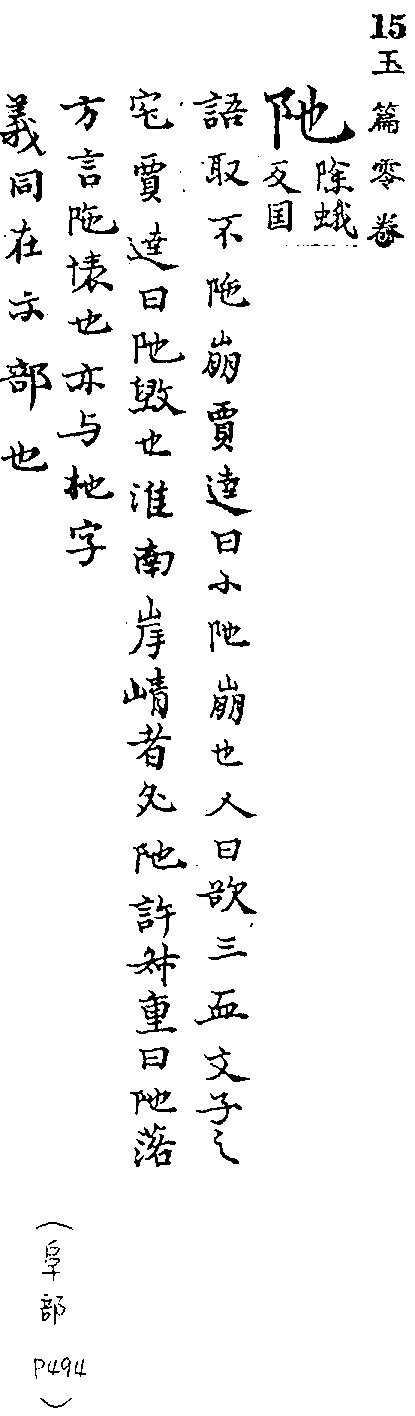 15玉篇零卷
阤除蛾
反国
語取不陁崩賈逵曰小阤崩也人曰欲三𠀌文子之
宅賈逵曰阤毀也淮南岸崝者必阤許叔重曰阤落
方言陁懐也亦与杝字
義同在示部也
(阜部 P494)